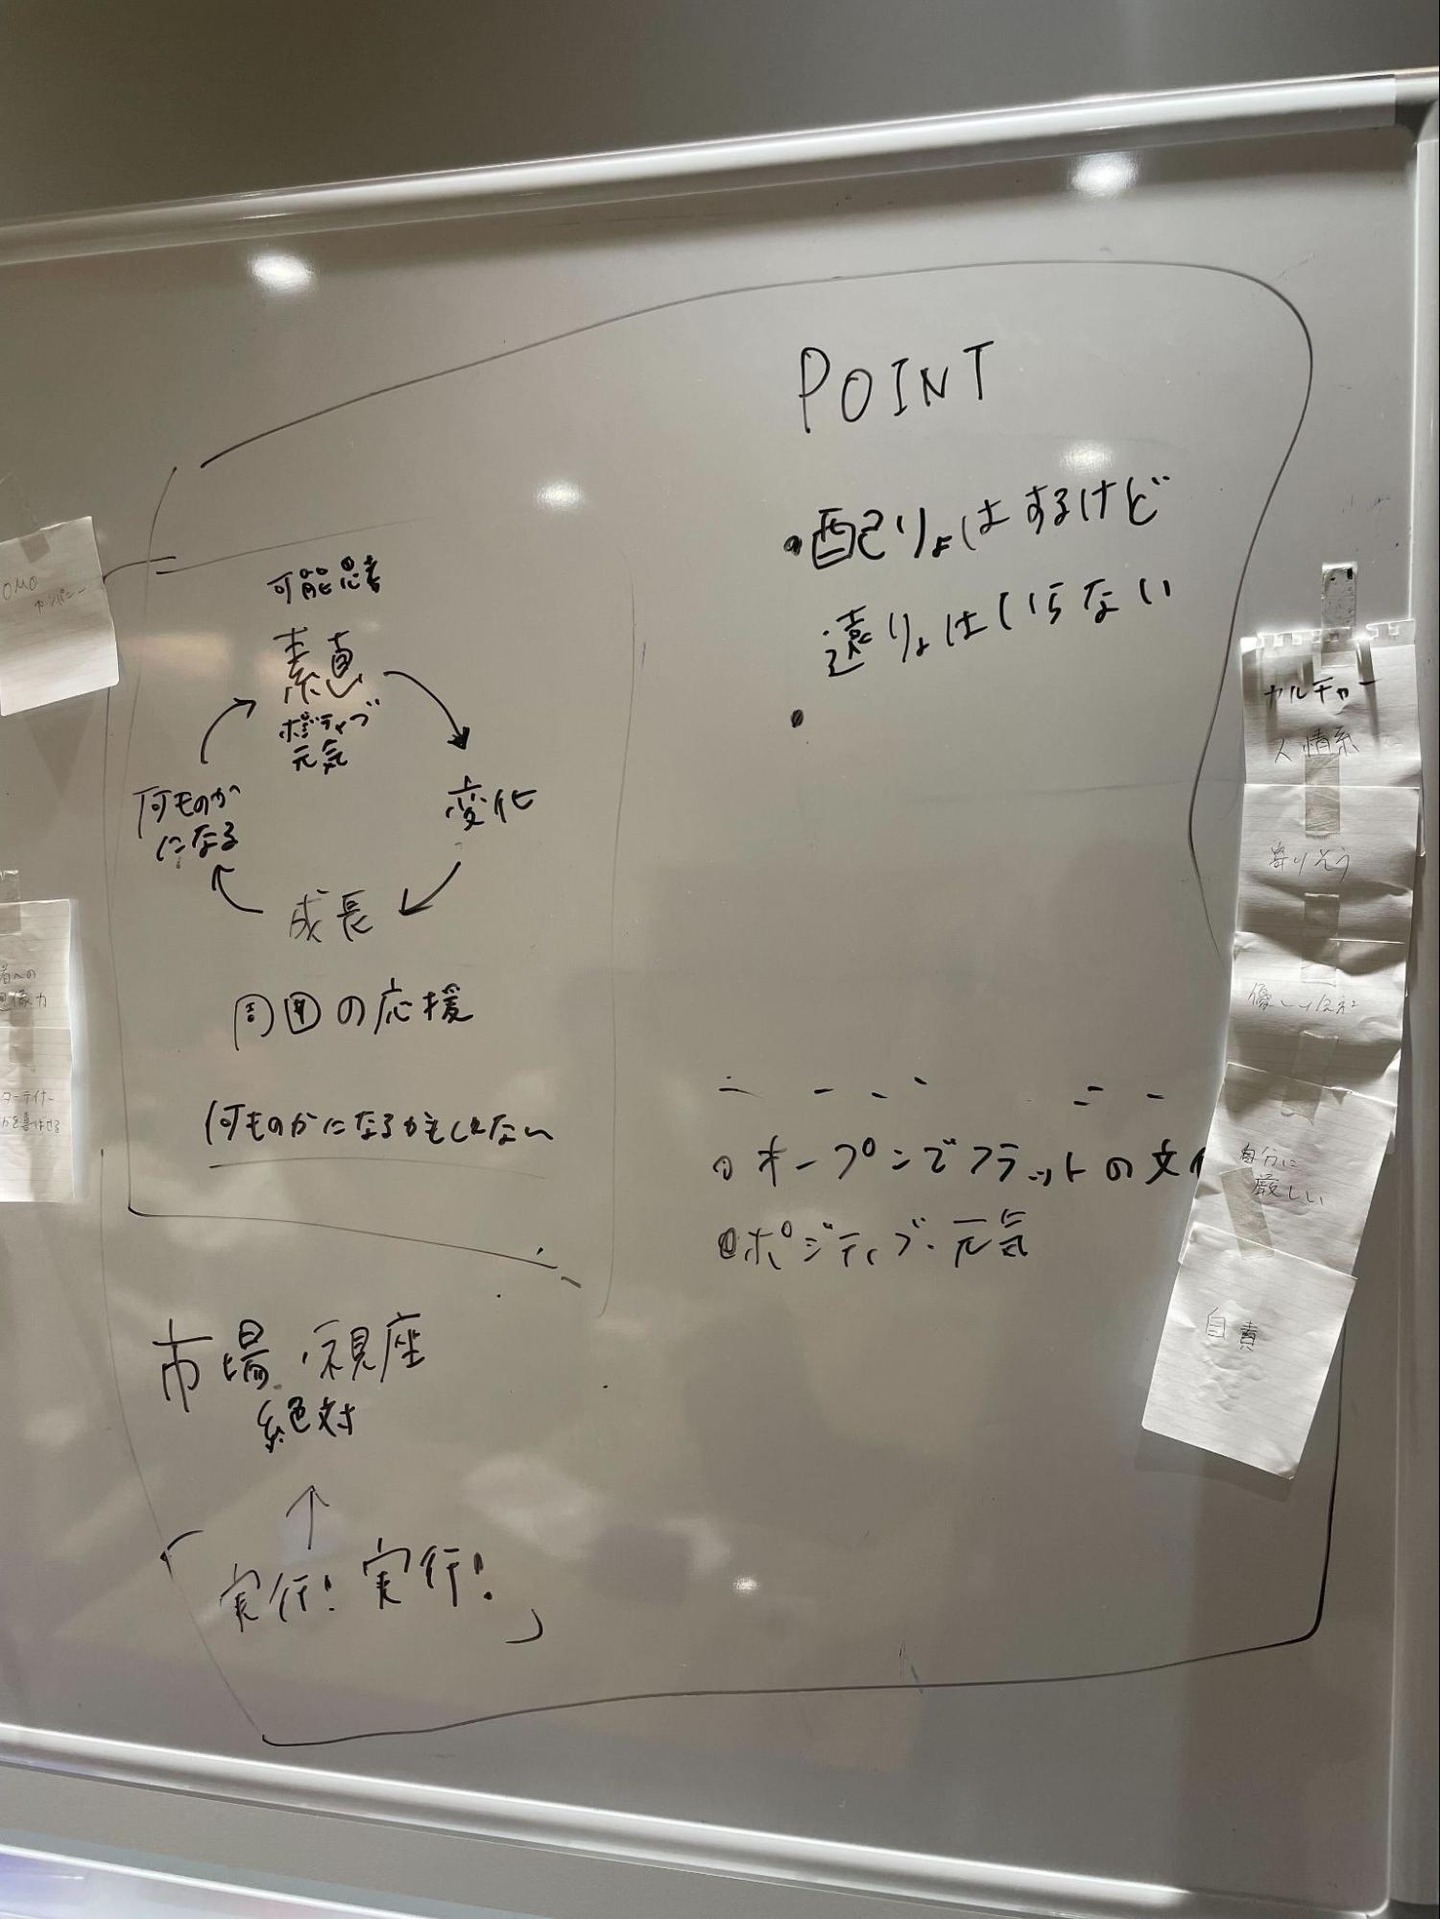 可能思考
素直
ポジティブ
元気
変化
成長
何ものか
になる
周囲の応援
何ものかになるかもしれない
市場・視座
絶対
「実行! 実行!」
POINT
・配りょはするけど
遠りょはいらない
・
オープンでフラットの文
ポジティブ・元気
OMO
カンパニー
者への
想像力
ターテイナー
を喜ばせる
カルチャー
人情系
寄りそう
優しい
自分に
厳しい
自責